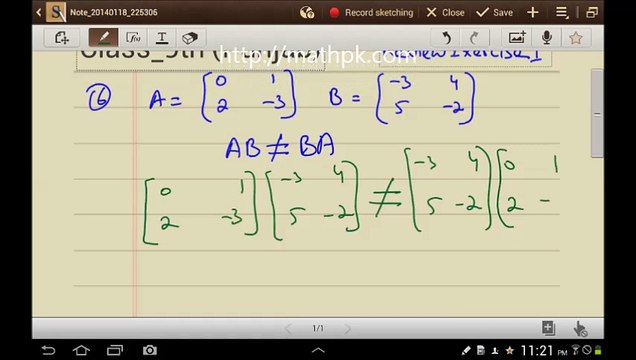 Note_20140118_225306
Record sketching Close Save
http://mathpk.com
Class_9th
Exercise_1
T
⑥ A = [0 1; 2 -3] B = [-3 4; 5 -2]
AB ≠ BA
[0 1; 2 -3] [-3 4; 5 -2] ≠ [-3 4; 5 -2] [0 1; 2 -
1/1
11:21 PM